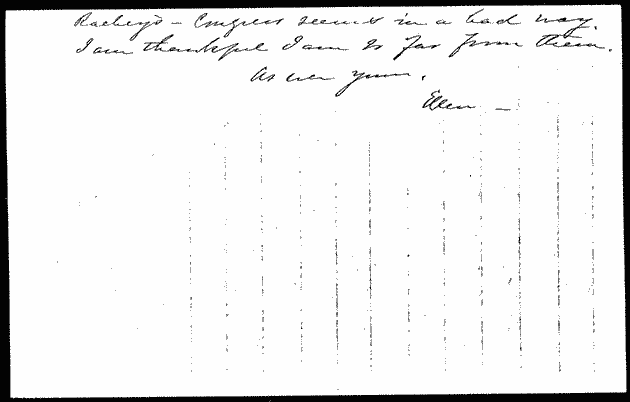 – Congress seems in a bad way.
I am thankful I am so far from them.
As ever yours,
Ellen –